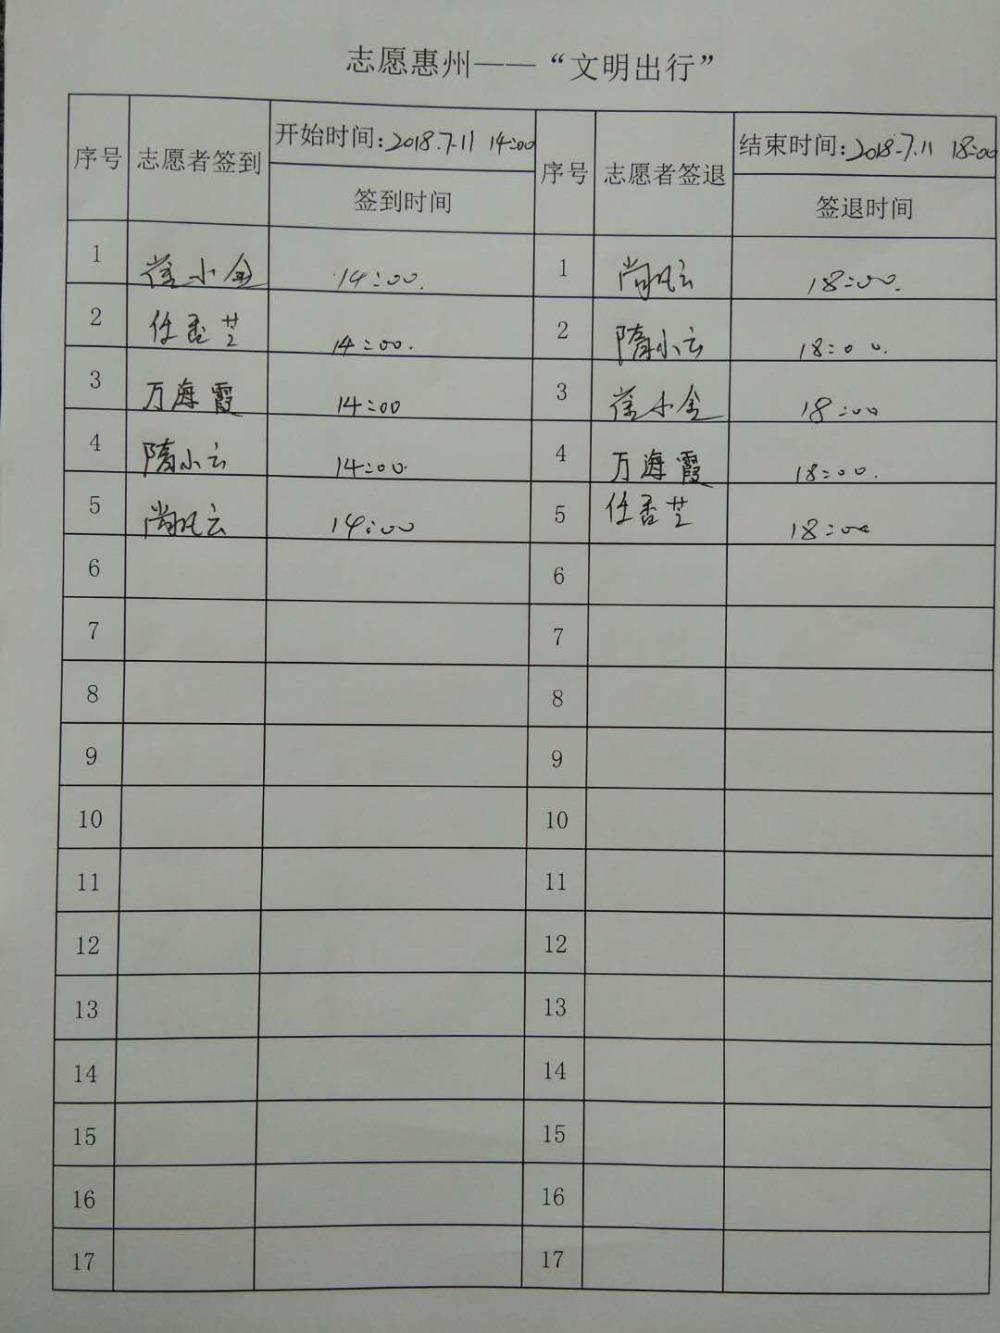 志愿惠州——“文明出行”
序号 志愿者签到 开始时间:2018.7.11 14:00 序号 志愿者签退 结束时间:2018.7.11 18:00
签到时间 签退时间
1 徐小金 14:00. 1 尚风云 18:00.
2 任香芝 14:00. 2 隋小云 18:00.
3 万海霞 14:00 3 徐小金 18:00
4 隋小云 14:00. 4 万海霞 18:00.
5 尚风云 14:00 5 任香芝 18:00
6 6
7 7
8 8
9 9
10 10
11 11
12 12
13 13
14 14
15 15
16 16
17 17